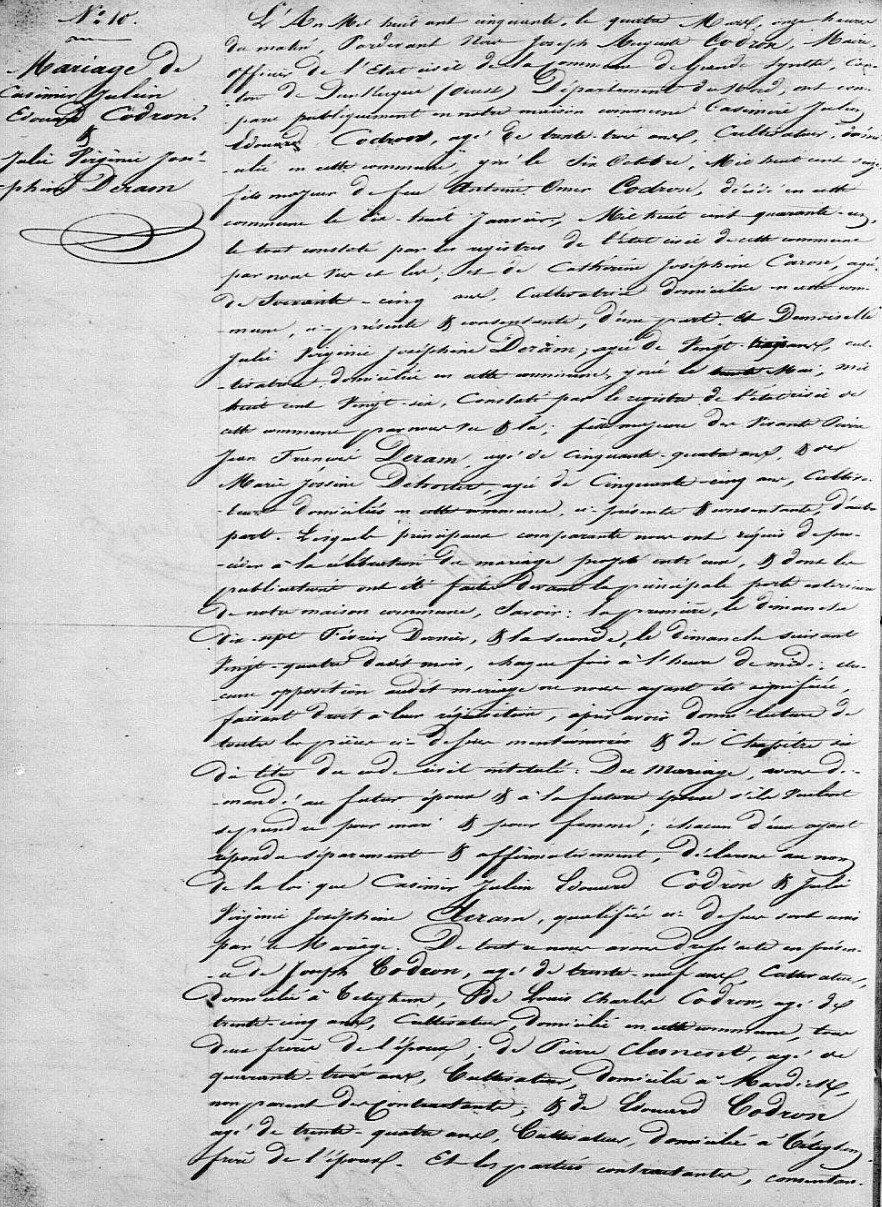 N.º 10.
Mariage de
Casimir Julien
Edouard Codron.
&
Julie Virginie José-
-phine Deram
L'An Mil huit cent cinquante, le quatre Mars, onze heures
du matin, Pardevant Nous Joseph Auguste Codron, Maire,
Officier de l'Etat civil de la commune de Grande Synthe, Can-
ton de Dunkerque (ouest) Département du Nord, ont com-
paru publiquement en notre maison commune Casimir Julien
Edouard Codron, agé de trente-trois ans, Cultivateur, domi-
-cilié en cette commune, y né le Six Octobre, Mil huit cent seize
fils majeur de feu Antoine Omer Codron, décédé en cette
commune le dix-huit Janvier, Mil huit cent quarante-un,
le tout constaté par les registres de l'état civil de cette commune
par nous vus et lus, et de Cathérine Joséphine Caron, agée
de Soixante-cinq ans, Cultivatrice domiciliée en cette com-
-mune, ci-présente & consentante, d'une part. Et Demoiselle
Julie Virginie Joséphine Deram, agée de Vingt-trois ans, cul-
tivatrice domiciliée en cette commune, y née le trente Mai, mil
huit cent Vingt-six, Constaté par le registre de l'état civil de
cette commune par nous vu & lu; fille majeure des Vivants Pierre
Jean François Deram, agé de cinquante-quatre ans, & de
Marie Jossine, agée de Cinquante-cinq ans, Cultiva-
-teurs domiciliés en cette commune, ci-présents & consentants, d'autre
part. Lesquels principaux comparants nous ont requis de pro-
-céder à la célébration du mariage projeté entr'eux, & dont les
publications ont été faites devant la principale porte extérieure
de notre maison commune, Savoir: la première, le dimanche
dix-sept Février Dernier, & la seconde, le dimanche suivant
Vingt-quatre dudit mois, chaque fois à l'heure de midi; au-
-cune opposition audit mariage ne nous ayant été signifiée,
faisant droit à leur réquisition, après avoir donné lecture de
toutes les pièces ci-dessus mentionnées & du Chapitre six
du titre du code civil intitulé: Du Mariage, avons de-
-mandé au futur époux & à la future épouse s'ils veulent
se prendre pour mari & pour femme; chacun d'eux ayant
répondu séparément & affirmativement, déclarons au nom
de la loi que Casimir Julien Edouard Codron & Julie
Virginie Joséphine Deram, qualifiés ci-dessus sont unis
par le Mariage. De tout ce nous avons dressé acte en présen-
-ce de Joseph Codron, agé de trente-neuf ans, Cultivateur,
domicilié à Téteghem, & de Louis Charles Codron, agé de
trente-cinq ans, Cultivateur, domicilié en cette commune, tous
deux frères de l'époux; de Pierre, agé de
quarante-trois ans, Cultivateur, domicilié à Mardick,
non parent des Contractants; & de Edouard Codron
agé de trente-quatre ans, Cultivateur, domicilié à Téteghem
frère de l'époux. Et les parties contractantes, consentan-